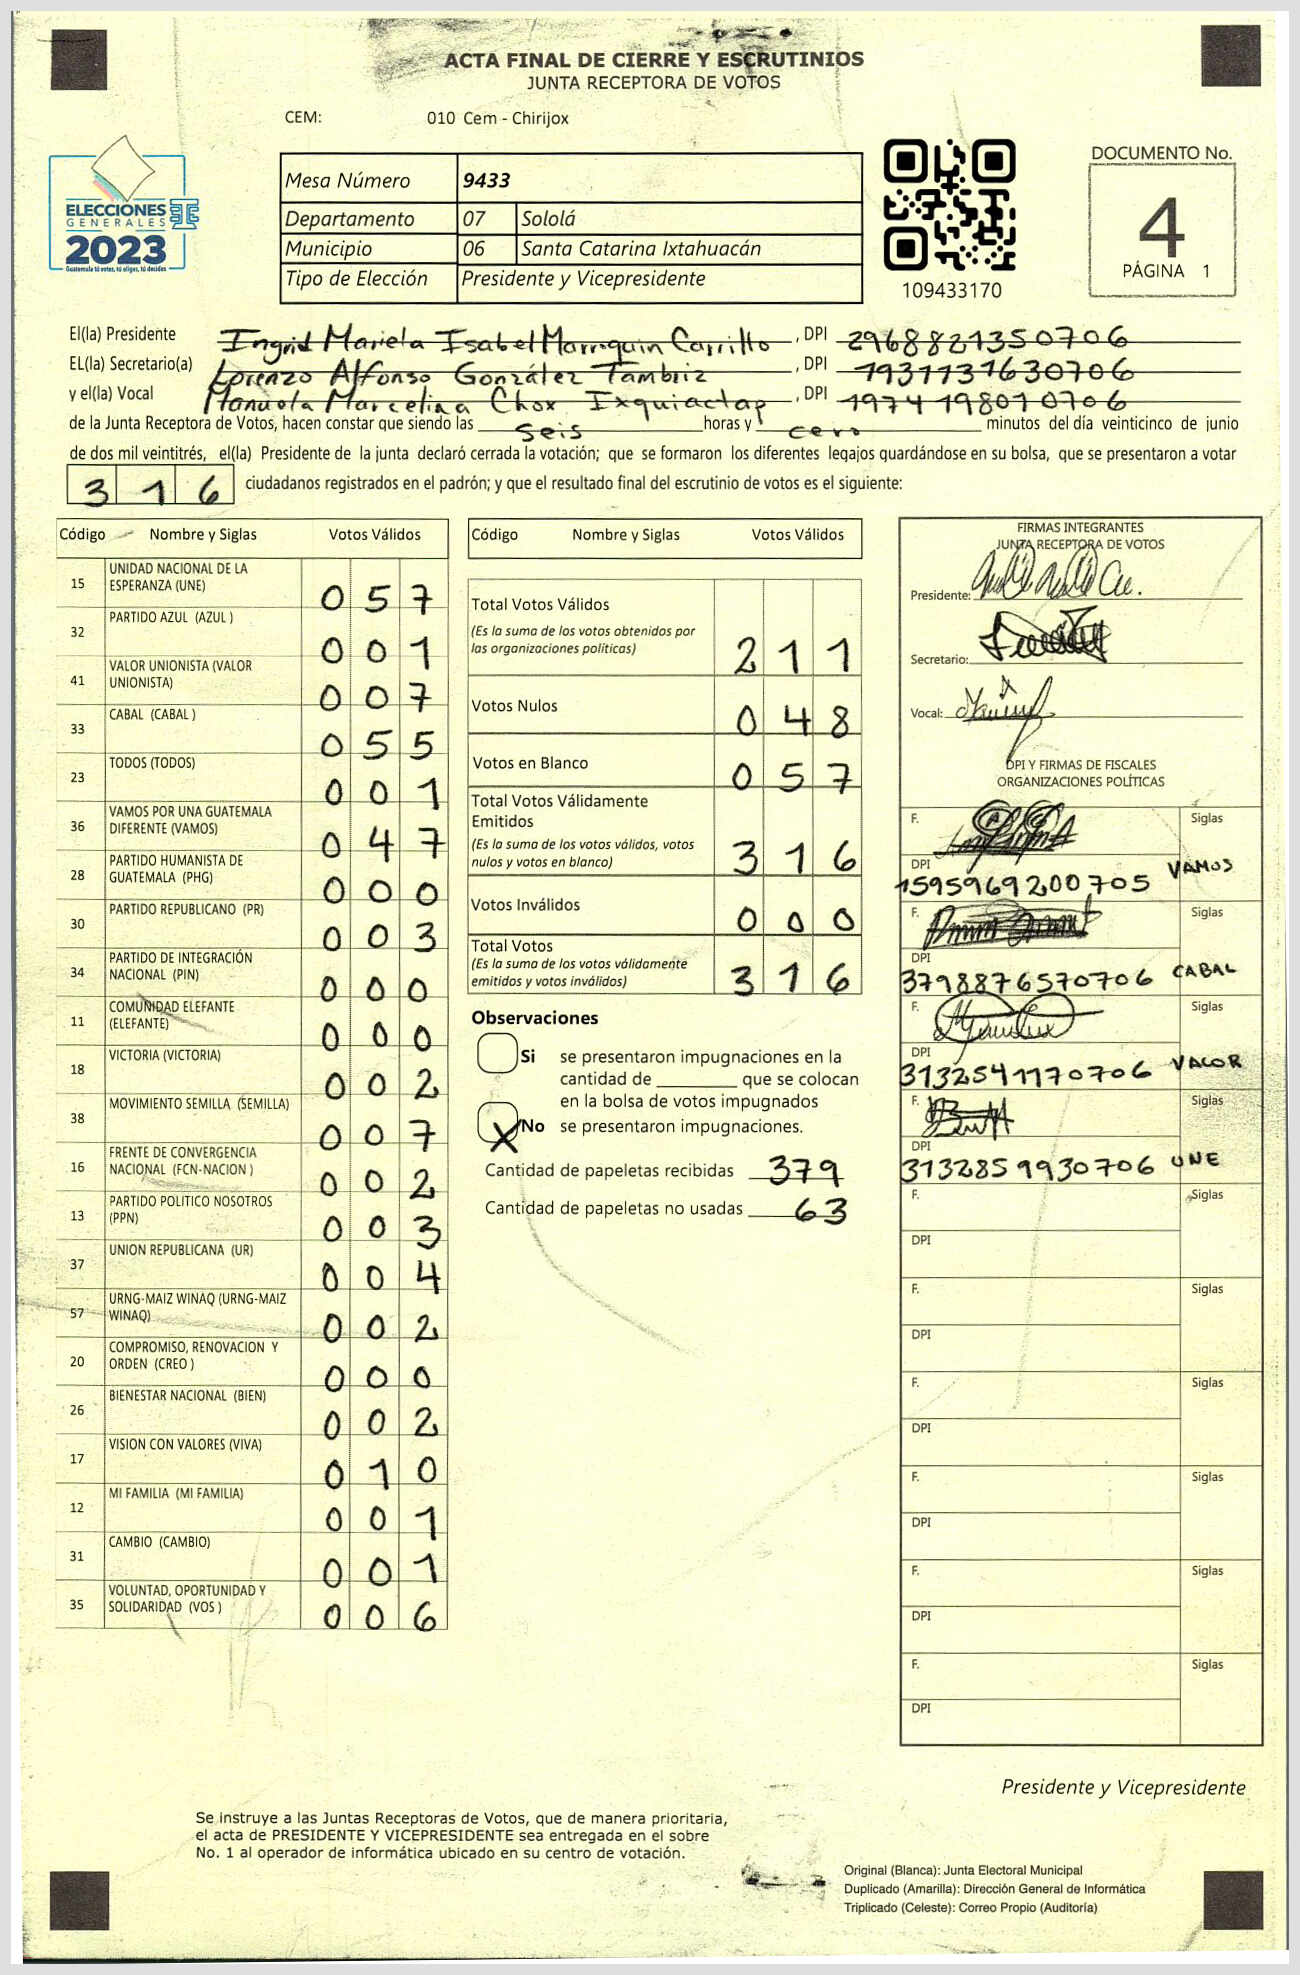 ACTA FINAL DE CIERRE Y ESCRUTINIOS
JUNTA RECEPTORA DE VOTOS
CEM: 010 Cem - Chirijox
ELECCIONES
GENERALES
2023
Guatemala tú votas, tú eliges, tú decides
Mesa Número 9433
Departamento 07 Sololá
Municipio 06 Santa Catarina Ixtahuacán
Tipo de Elección Presidente y Vicepresidente
109433170
DOCUMENTO No.
4
PÁGINA 1
El(la) Presidente Ingrid Mariela Isabel Marroquin Carrillo, DPI 2968821350706
EL(la) Secretario(a) Lorenzo Alfonso González Tambriz, DPI 1931131630706
y el(la) Vocal Manuela Marcelina Chox Ixquiactap, DPI 1974198010706
de la Junta Receptora de Votos, hacen constar que siendo las seis horas y cero minutos del día veinticinco de junio
de dos mil veintitrés, el(la) Presidente de la junta declaró cerrada la votación; que se formaron los diferentes legajos guardándose en su bolsa, que se presentaron a votar
316 ciudadanos registrados en el padrón; y que el resultado final del escrutinio de votos es el siguiente:
Código Nombre y Siglas Votos Válidos
15 UNIDAD NACIONAL DE LA ESPERANZA (UNE) 057
32 PARTIDO AZUL (AZUL ) 001
41 VALOR UNIONISTA (VALOR UNIONISTA) 007
33 CABAL (CABAL ) 055
23 TODOS (TODOS) 001
36 VAMOS POR UNA GUATEMALA DIFERENTE (VAMOS) 047
28 PARTIDO HUMANISTA DE GUATEMALA (PHG) 000
30 PARTIDO REPUBLICANO (PR) 003
34 PARTIDO DE INTEGRACIÓN NACIONAL (PIN) 000
11 COMUNIDAD ELEFANTE (ELEFANTE) 000
18 VICTORIA (VICTORIA) 002
38 MOVIMIENTO SEMILLA (SEMILLA) 007
16 FRENTE DE CONVERGENCIA NACIONAL (FCN-NACION ) 002
13 PARTIDO POLITICO NOSOTROS (PPN) 003
37 UNION REPUBLICANA (UR) 004
57 URNG-MAIZ WINAQ (URNG-MAIZ WINAQ) 002
20 COMPROMISO, RENOVACION Y ORDEN (CREO ) 000
26 BIENESTAR NACIONAL (BIEN) 002
17 VISION CON VALORES (VIVA) 010
12 MI FAMILIA (MI FAMILIA) 001
31 CAMBIO (CAMBIO) 001
35 VOLUNTAD, OPORTUNIDAD Y SOLIDARIDAD (VOS ) 006
Código Nombre y Siglas Votos Válidos
Total Votos Válidos
(Es la suma de los votos obtenidos por
las organizaciones políticas) 211
Votos Nulos 048
Votos en Blanco 057
Total Votos Válidamente
Emitidos
(Es la suma de los votos válidos, votos
nulos y votos en blanco) 316
Votos Inválidos 000
Total Votos
(Es la suma de los votos válidamente
emitidos y votos inválidos) 316
Observaciones
Si se presentaron impugnaciones en la
cantidad de ________ que se colocan
en la bolsa de votos impugnados
X No se presentaron impugnaciones.
Cantidad de papeletas recibidas 379
Cantidad de papeletas no usadas 63
FIRMAS INTEGRANTES
JUNTA RECEPTORA DE VOTOS
Presidente:
Secretario:
Vocal:
DPI Y FIRMAS DE FISCALES
ORGANIZACIONES POLÍTICAS
F. Siglas
DPI
1595969200705 VAMOS
F. Siglas
DPI
3798876570706 CABAL
F. Siglas
DPI
3132541170706 VALOR
F. Siglas
DPI
3132859930706 UNE
F. Siglas
DPI
F. Siglas
DPI
F. Siglas
DPI
F. Siglas
DPI
F. Siglas
DPI
F. Siglas
DPI
Presidente y Vicepresidente
Se instruye a las Juntas Receptoras de Votos, que de manera prioritaria,
el acta de PRESIDENTE Y VICEPRESIDENTE sea entregada en el sobre
No. 1 al operador de informática ubicado en su centro de votación.
Original (Blanca): Junta Electoral Municipal
Duplicado (Amarilla): Dirección General de Informática
Triplicado (Celeste): Correo Propio (Auditoría)